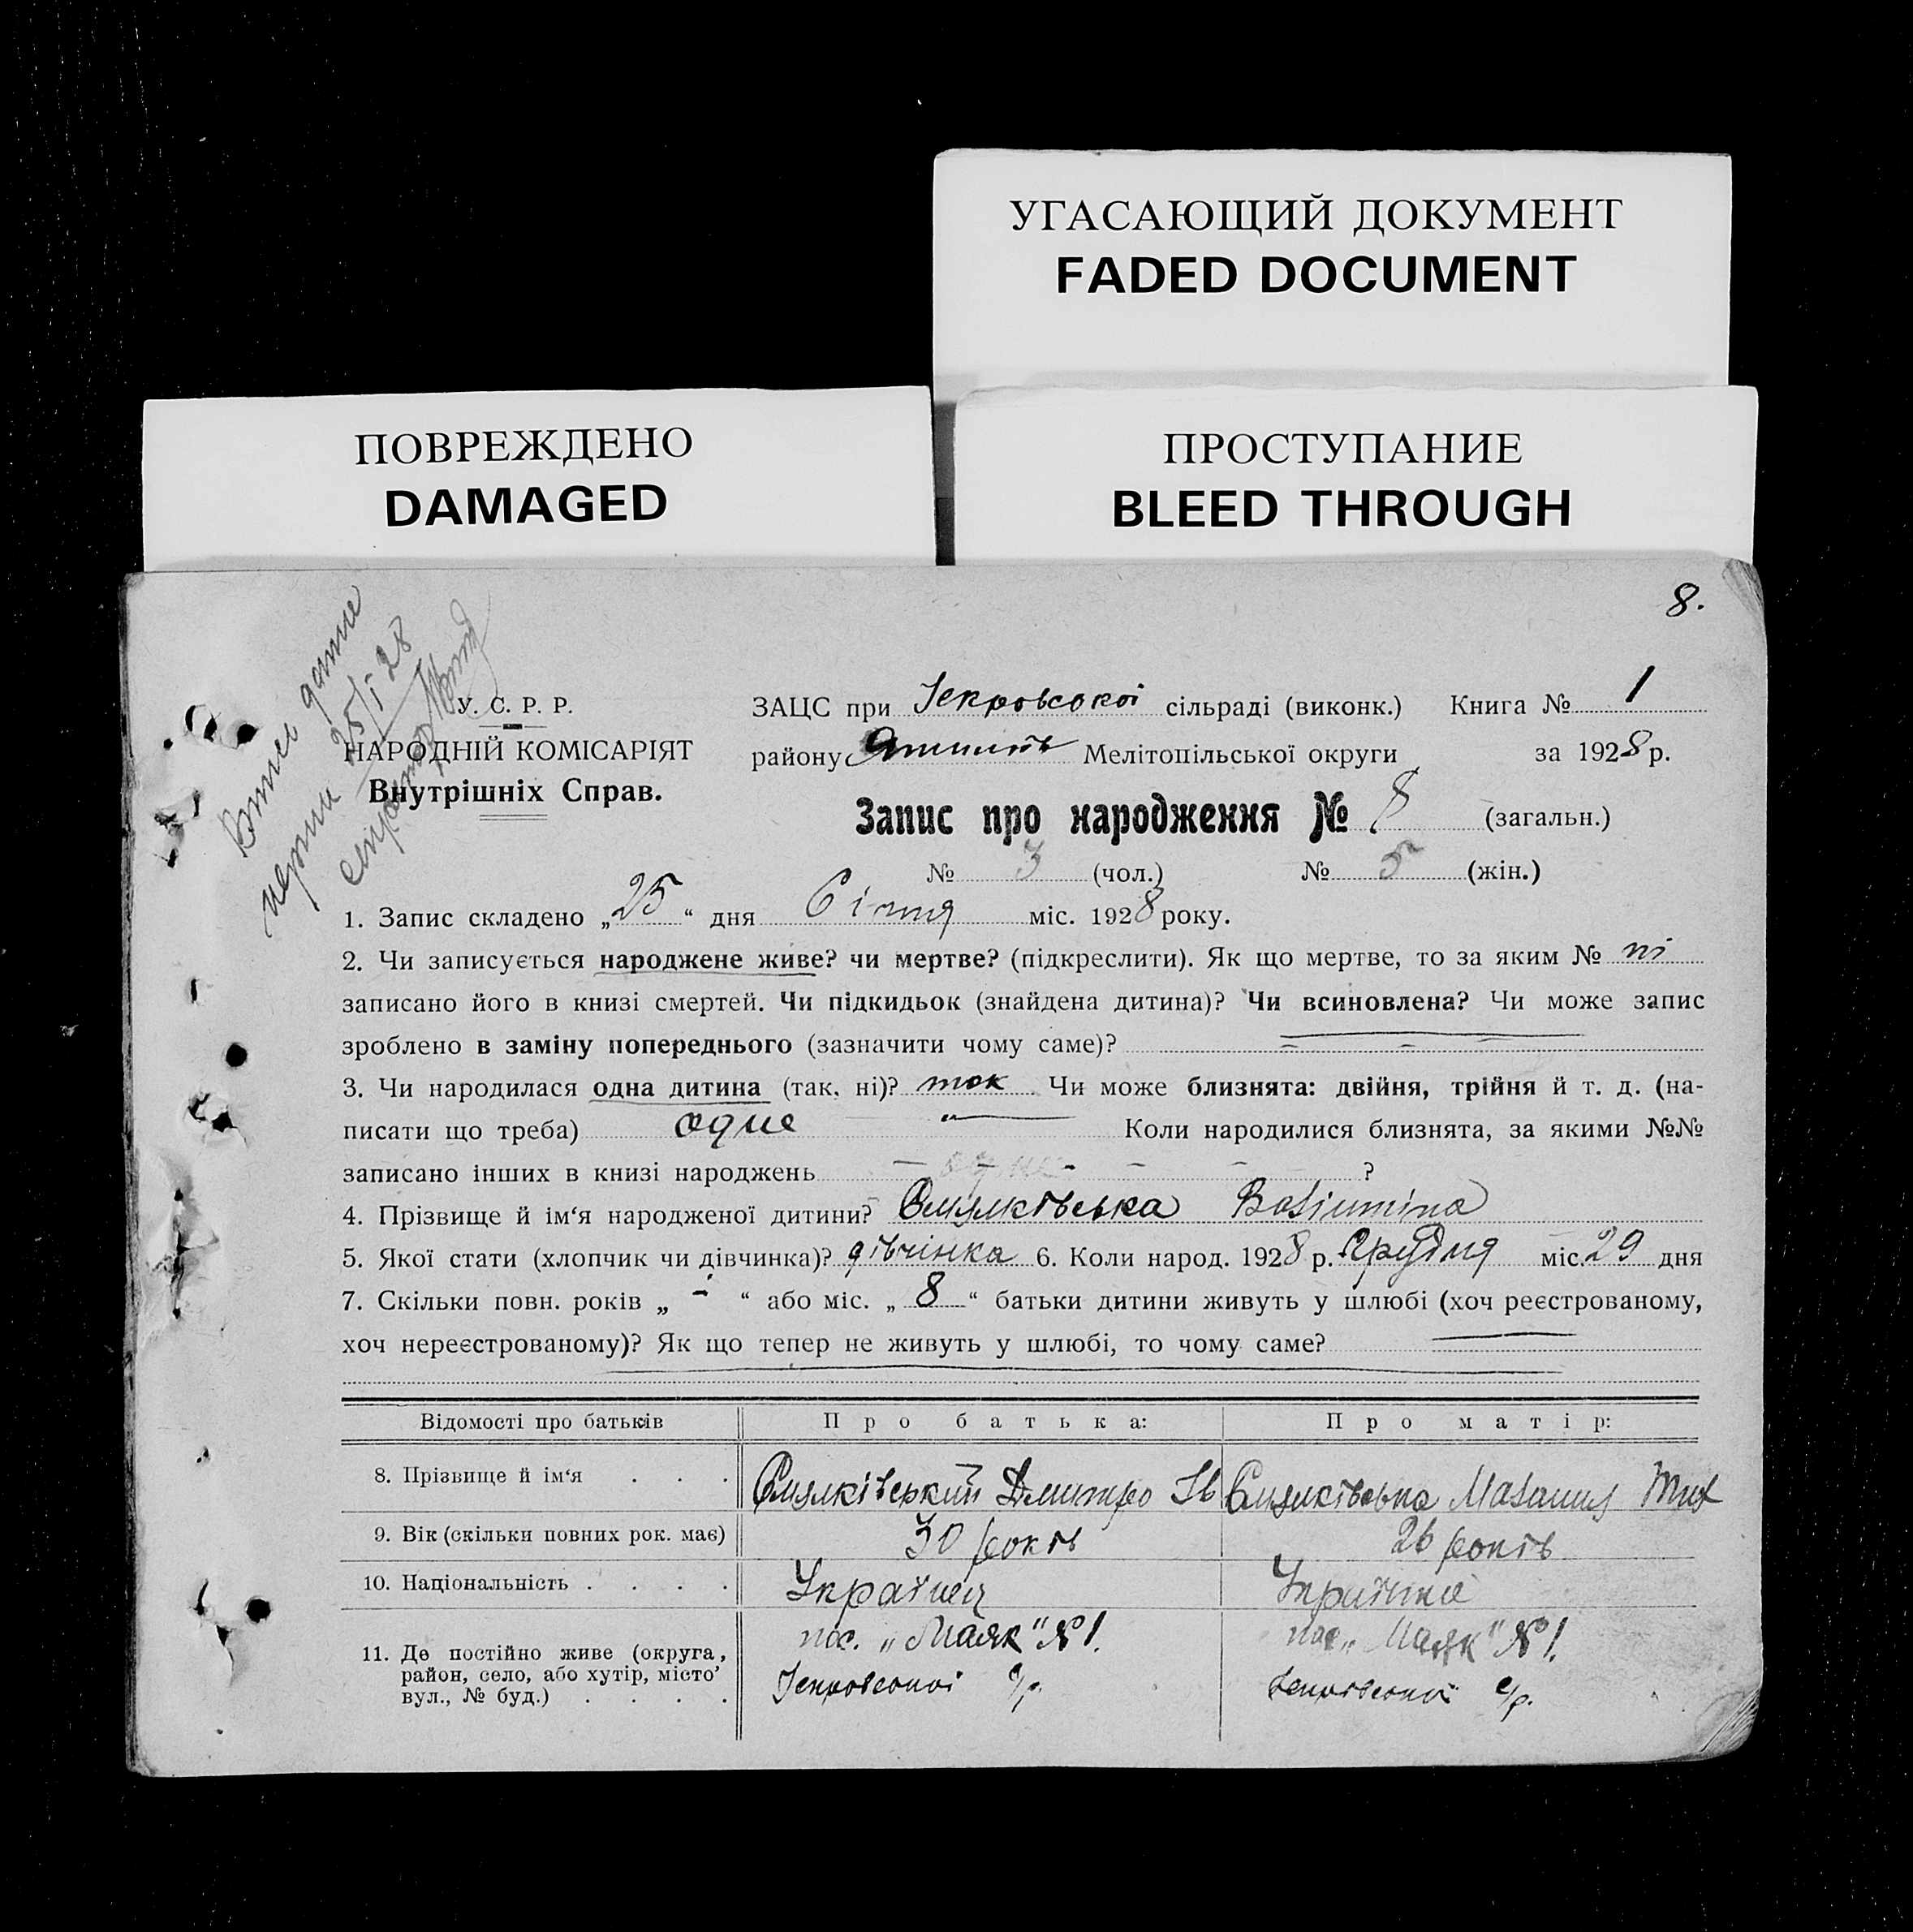 УГАСАЮЩИЙ ДОКУМЕНТ
FADED DOCUMENT
ПОВРЕЖДЕНО
DAMAGED
ПРОСТУПАНИЕ
BLEED THROUGH
8.
25/I 28
У. С. Р. Р.
НАРОДНІЙ КОМІСАРІЯТ
Внутрішніх Справ.
ЗАЦС при сільраді (виконк.) Книга № 1
району Мелітопільської округи за 1928 р.
Запис про народження № 8 (загальн.)
№ 3 (чол.) № 5 (жін.)
1. Запис складено „25“ дня Січня міс. 1928 року.
2. Чи записується народжене живе? чи мертве? (підкреслити). Як що мертве, то за яким № ні
записано його в книзі смертей. Чи підкидьок (знайдена дитина)? Чи всиновлена? Чи може запис
зроблено в заміну попереднього (зазначити чому саме)?
3. Чи народилася одна дитина (так, ні)? так Чи може близнята: двійня, трійня й т. д. (на-
писати що треба) одне Коли народилися близнята, за якими №№
записано інших в книзі народжень ?
4. Прізвище й ім‘я народженої дитини?
5. Якої стати (хлопчик чи дівчинка)? дівчінка 6. Коли народ. 1928 р. Грудня міс. 29 дня
7. Скільки повн. років „ - “ або міс. „ 8 “ батьки дитини живуть у шлюбі (хоч реєстрованому,
хоч нереєстрованому)? Як що тепер не живуть у шлюбі, то чому саме?
Відомості про батьків Про батька: Про матір:
8. Прізвище й ім‘я . . . Дмитро Ів
9. Вік (скільки повних рок. має) 30 років 26 років
10. Національність . . . . Українец Українка
11. Де постійно живе (округа, пос. „Маяк“ №1. пос. „Маяк“ №1.
район, село, або хутір, місто с/р. с/р.
вул., № буд.) . . . .